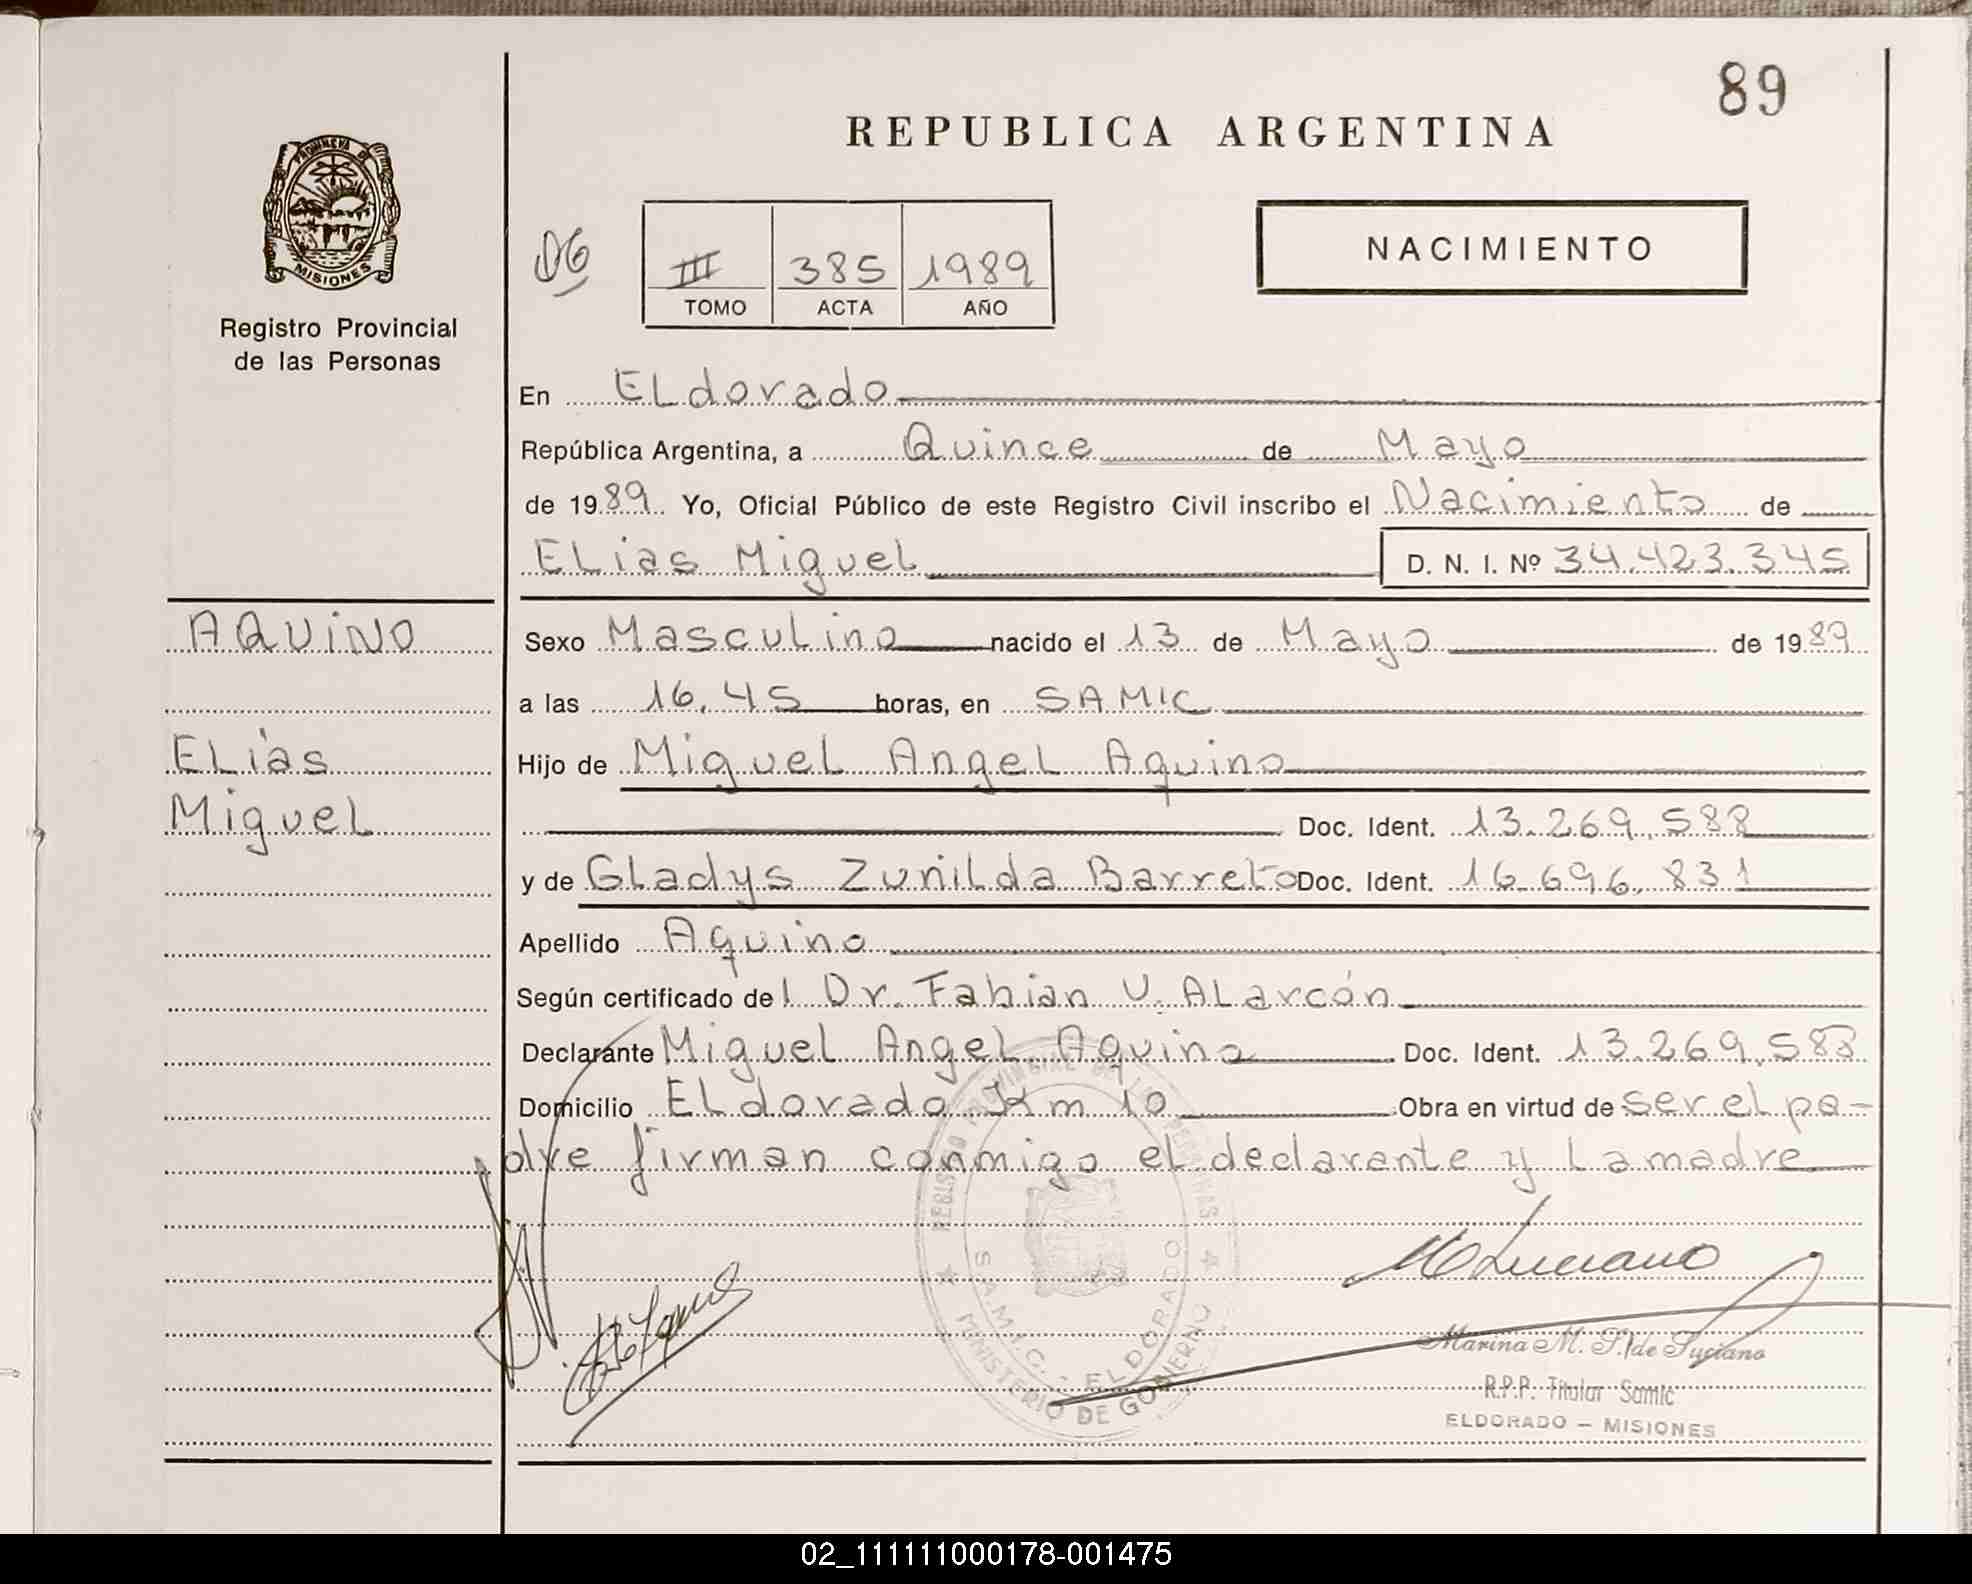 89
REPUBLICA ARGENTINA
PROVINCIA DE
MISIONES
Registro Provincial
de las Personas
06
III 385 1989
TOMO ACTA AÑO
NACIMIENTO
En ELdorado
República Argentina, a Quince de Mayo
de 1989. Yo, Oficial Público de este Registro Civil inscribo el Nacimiento de
ELias Miguel D. N. I. Nº 34.423.345
AQUINO
ELías
Miguel
Sexo MascuLino nacido el 13 de Mayo de 1989
a las 16.45 horas, en SAMIC
Hijo de MigueL AngeL Aquino
Doc. Ident. 13.269.588
y de Gladys Zunilda Barreto Doc. Ident. 16.696.831
Apellido Aquino
Según certificado del Dr. Fabian V. ALarcón
Declarante Miguel AngeL Aquino Doc. Ident. 13.269.588
Domicilio ELdorado Km 10 Obra en virtud de ser el pa-
dre firman conmigo el declarante y La madre
REGISTRO PROVINCIAL DE LAS PERSONAS
S.A.M.I.C. - ELDORADO
MINISTERIO DE GOBIERNO
M Luciano
Marina M. S. de Luciano
R.P.P. Titular Samic
ELDORADO - MISIONES
02_111111000178-001475